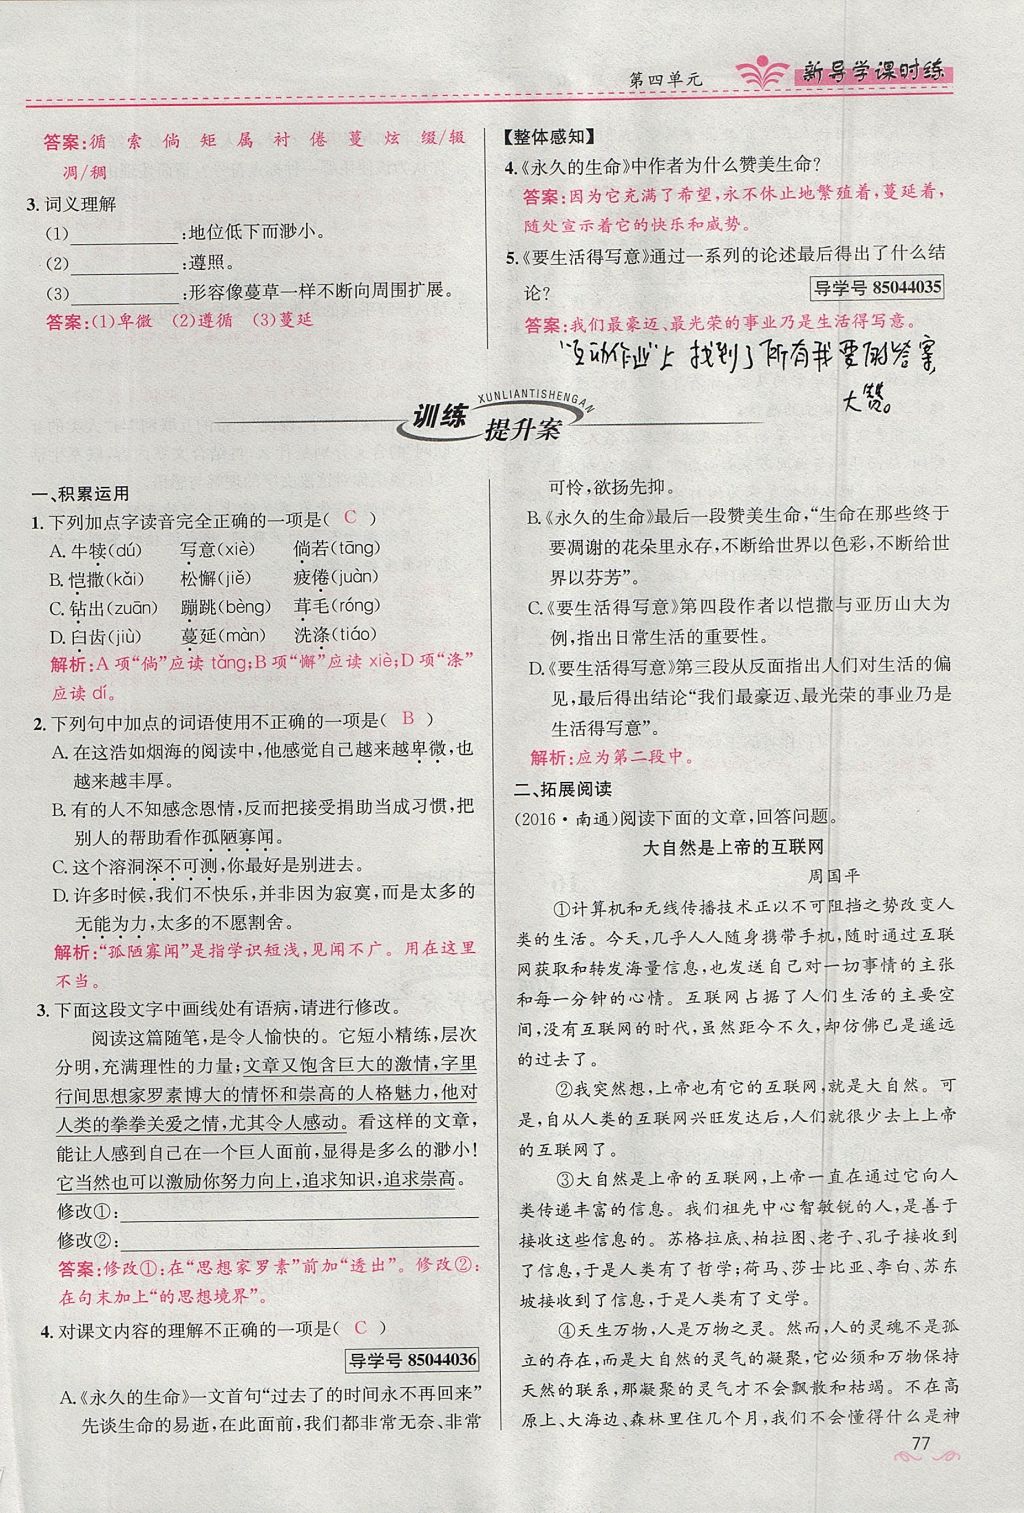 第四单元
新导学课时练
答案:循 索 倘 矩 属 衬 倦 蔓 炫 缀/辍
凋/稠
3. 词义理解
(1)____________:地位低下而渺小。
(2)____________:遵照。
(3)____________:形容像蔓草一样不断向周围扩展。
答案:(1)卑微 (2)遵循 (3)蔓延
【整体感知】
4.《永久的生命》中作者为什么赞美生命?
答案:因为它充满了希望,永不休止地繁殖着,蔓延着,
随处宣示着它的快乐和威势。
5.《要生活得写意》通过一系列的论述最后得出了什么结
论?
导学号 85044035
答案:我们最豪迈、最光荣的事业乃是生活得写意。
“互动作业”上 找到了所有我要的答案,
大赞。
训练
XUNLIANTISHENGAN
提升案
一、积累运用
1. 下列加点字读音完全正确的一项是( C )
A. 牛犊(dú) 写意(xiè) 倘若(tāng)
B. 恺撒(kǎi) 松懈(jiě) 疲倦(juàn)
C. 钻出(zuān) 蹦跳(bèng) 茸毛(róng)
D. 臼齿(jiù) 蔓延(màn) 洗涤(tiáo)
解析:A 项“倘”应读 tǎng;B 项“懈”应读 xiè;D 项“涤”
应读 dí。
2. 下列句中加点的词语使用不正确的一项是( B )
A. 在这浩如烟海的阅读中,他感觉自己越来越卑微,也
越来越丰厚。
B. 有的人不知感念恩情,反而把接受捐助当成习惯,把
别人的帮助看作孤陋寡闻。
C. 这个溶洞深不可测,你最好是别进去。
D. 许多时候,我们不快乐,并非因为寂寞,而是太多的
无能为力,太多的不愿割舍。
解析:“孤陋寡闻”是指学识短浅,见闻不广。用在这里
不当。
3. 下面这段文字中画线处有语病,请进行修改。
阅读这篇随笔,是令人愉快的。它短小精练,层次
分明,充满理性的力量;文章又饱含巨大的激情,字里
行间思想家罗素博大的情怀和崇高的人格魅力,他对
人类的拳拳关爱之情,尤其令人感动。看这样的文章,
能让人感到自己在一个巨人面前,显得是多么的渺小!
它当然也可以激励你努力向上,追求知识,追求崇高。
修改①:____________
修改②:____________
答案:修改①:在“思想家罗素”前加“透出”。修改②:
在句末加上“的思想境界”。
4. 对课文内容的理解不正确的一项是( C )
导学号 85044036
A.《永久的生命》一文首句“过去了的时间永不再回来”
先谈生命的易逝,在此面前,我们都非常无奈、非常
可怜,欲扬先抑。
B.《永久的生命》最后一段赞美生命,“生命在那些终于
要凋谢的花朵里永存,不断给世界以色彩,不断给世
界以芬芳”。
C.《要生活得写意》第四段作者以恺撒与亚历山大为
例,指出日常生活的重要性。
D.《要生活得写意》第三段从反面指出人们对生活的偏
见,最后得出结论“我们最豪迈、最光荣的事业乃是
生活得写意”。
解析:应为第二段中。
二、拓展阅读
(2016·南通)阅读下面的文章,回答问题。
大自然是上帝的互联网
周国平
①计算机和无线传播技术正以不可阻挡之势改变人
类的生活。今天,几乎人人随身携带手机,随时通过互联
网获取和转发海量信息,也发送自己对一切事情的主张
和每一分钟的心情。互联网占据了人们生活的主要空
间,没有互联网的时代,虽然距今不久,却仿佛已是遥远
的过去了。
②我突然想,上帝也有它的互联网,就是大自然。可
是,自从人类的互联网兴旺发达后,人们就很少去上上帝
的互联网了。
③大自然是上帝的互联网,上帝一直在通过它向人
类传递丰富的信息。我们祖先中心智敏锐的人,是善于
接收这些信息的。苏格拉底、柏拉图、老子、孔子接收到
了信息,于是人类有了哲学;荷马、莎士比亚、李白、苏东
坡接收到了信息,于是人类有了文学。
④天生万物,人是万物之灵。然而,人的灵魂不是孤
立的存在,而是大自然的灵气的凝聚,它必须和万物保持
天然的联系,那凝聚的灵气才不会飘散和枯竭。不在高
原上、大海边、森林里住几个月,我们不会懂得什么是神
77